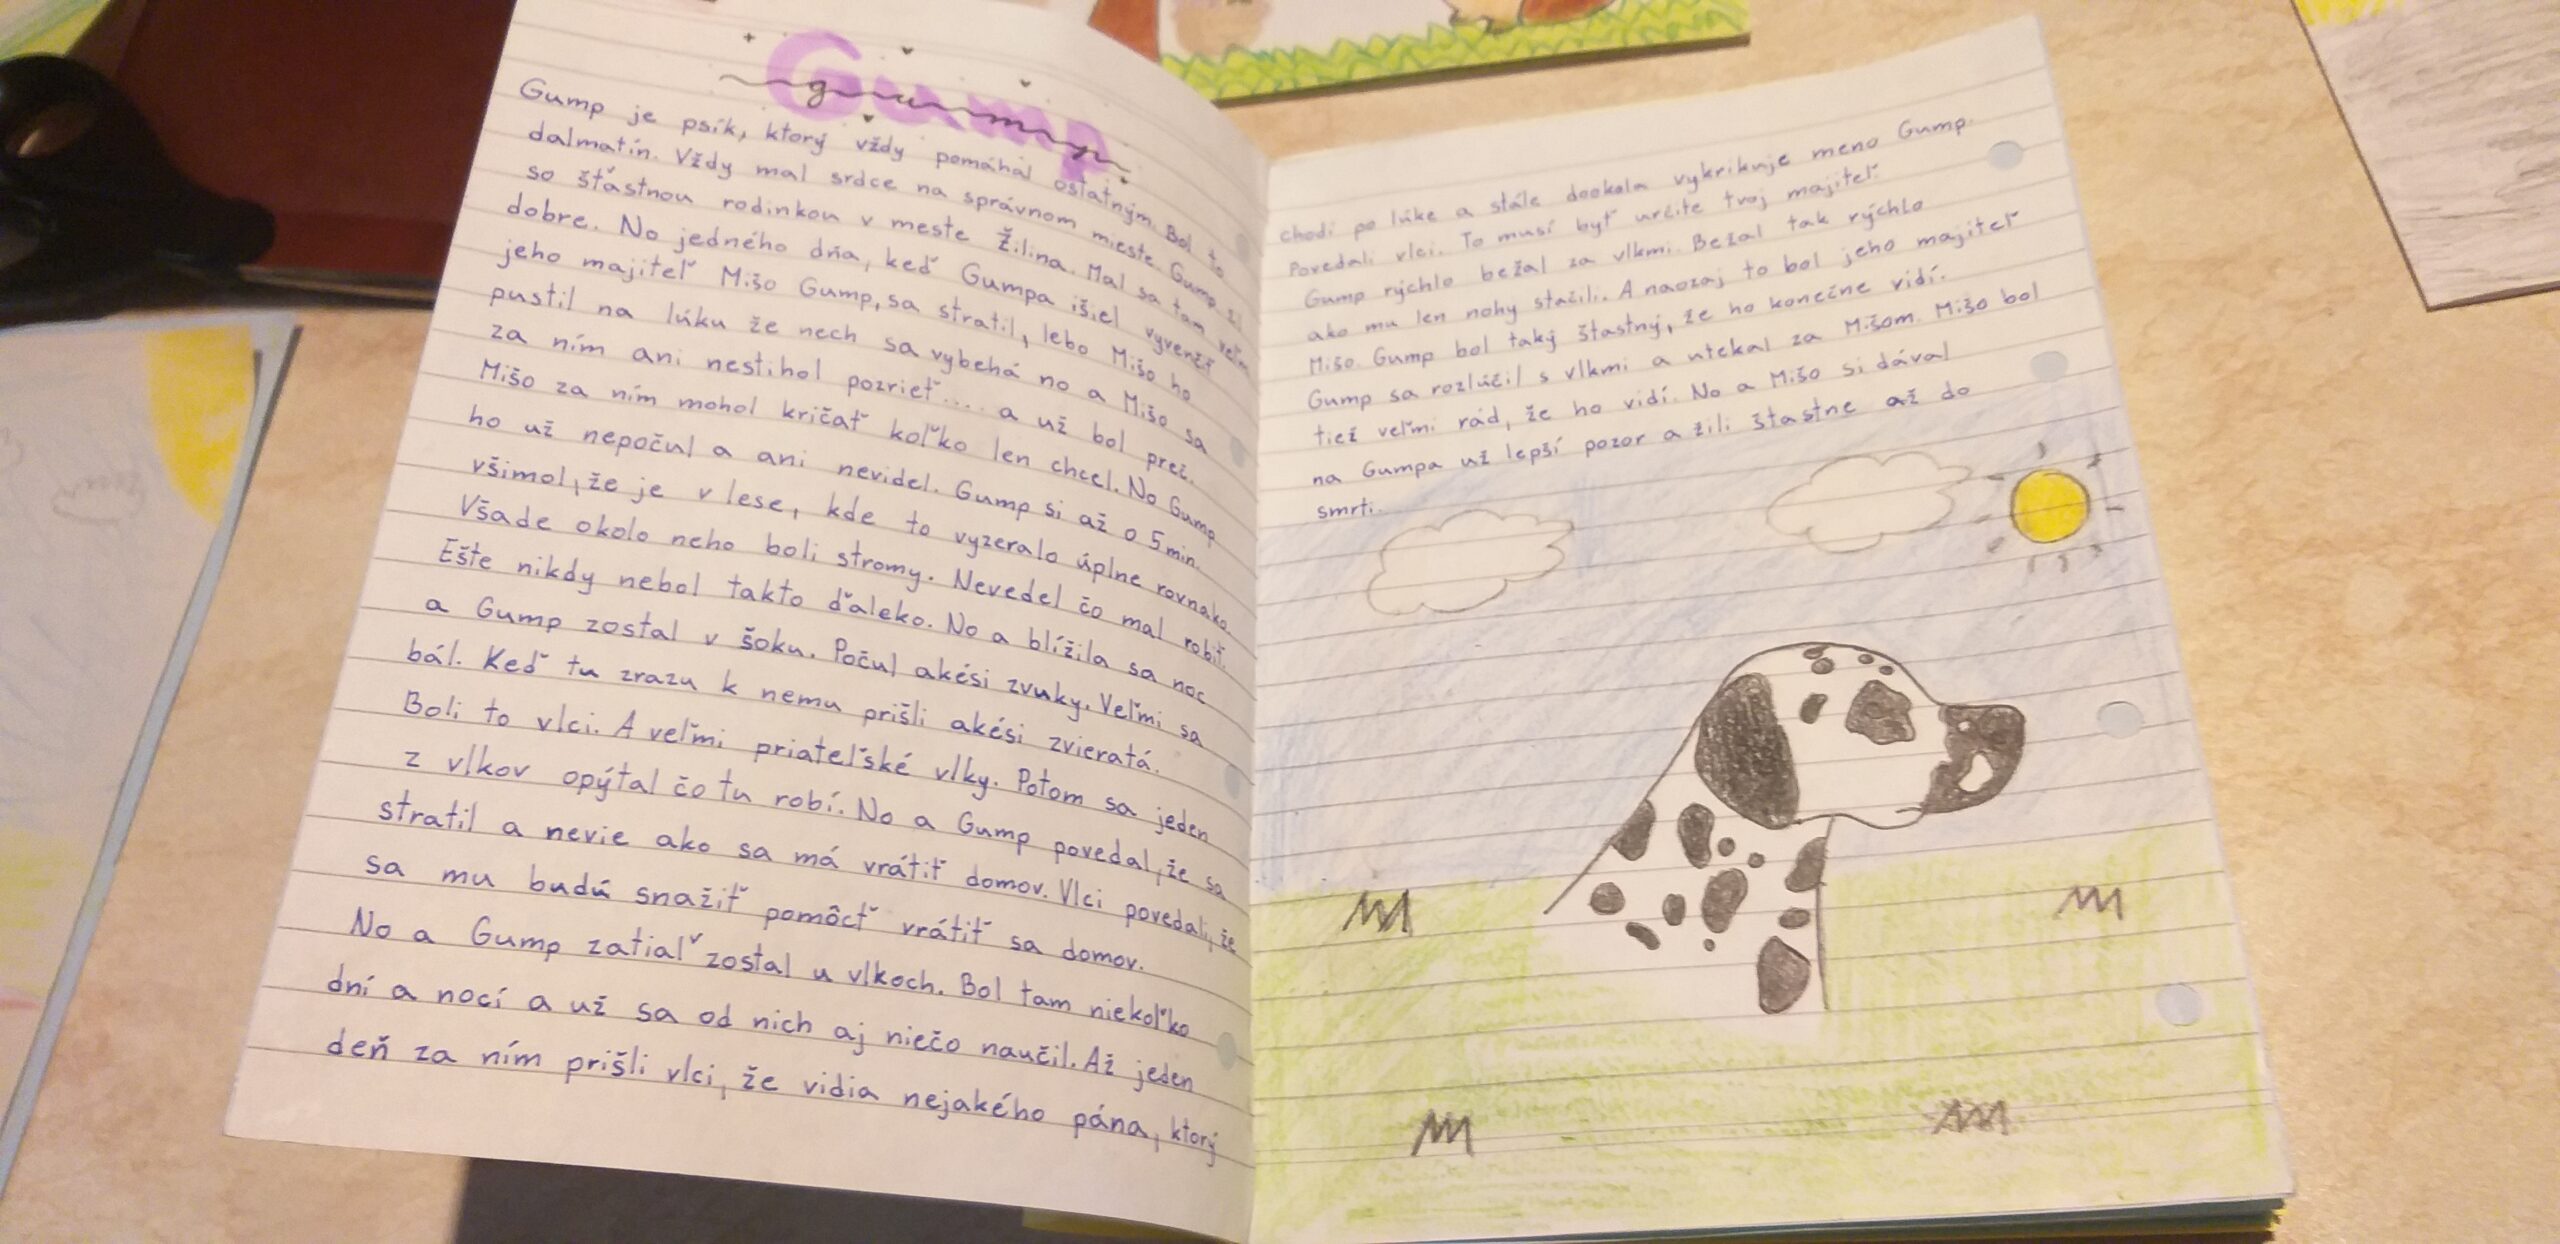 Gump
gump
Gump je psík, ktorý vždy pomáhal ostatným. Bol to
dalmatín. Vždy mal srdce na správnom mieste. Gump žil
so šťastnou rodinkou v meste Žilina. Mal sa tam veľmi
dobre. No jedného dňa, keď Gumpa išiel vyvenčiť
jeho majiteľ Mišo Gump, sa stratil, lebo Mišo ho
pustil na lúku že nech sa vybehá no a Mišo sa
za ním ani nestihol pozrieť.... a už bol preč.
Mišo za ním mohol kričať koľko len chcel. No Gump
ho už nepočul a ani nevidel. Gump si až o 5 min.
všimol, že je v lese, kde to vyzeralo úplne rovnako.
Všade okolo neho boli stromy. Nevedel čo mal robiť.
Ešte nikdy nebol takto ďaleko. No a blížila sa noc
a Gump zostal v šoku. Počul akési zvuky. Veľmi sa
bál. Keď tu zrazu k nemu prišli akési zvieratá.
Boli to vlci. A veľmi priateľské vlky. Potom sa jeden
z vlkov opýtal čo tu robí. No a Gump povedal, že sa
stratil a nevie ako sa má vrátiť domov. Vlci povedali, že
sa mu budú snažiť pomôcť vrátiť sa domov.
No a Gump zatiaľ zostal u vlkoch. Bol tam niekoľko
dní a nocí a už sa od nich aj niečo naučil. Až jeden
deň za ním prišli vlci, že vidia nejakého pána, ktorý
chodí po lúke a stále dookola vykrikuje meno Gump.
Povedali vlci. To musí byť určite tvoj majiteľ.
Gump rýchlo bežal za vlkmi. Bežal tak rýchlo
ako mu len nohy stačili. A naozaj to bol jeho majiteľ
Mišo. Gump bol taký štastný, že ho konečne vidí.
Gump sa rozlúčil s vlkmi a utekal za Mišom. Mišo bol
tiež veľmi rád, že ho vidí. No a Mišo si dával
na Gumpa už lepší pozor a žili štastne až do
smrti.